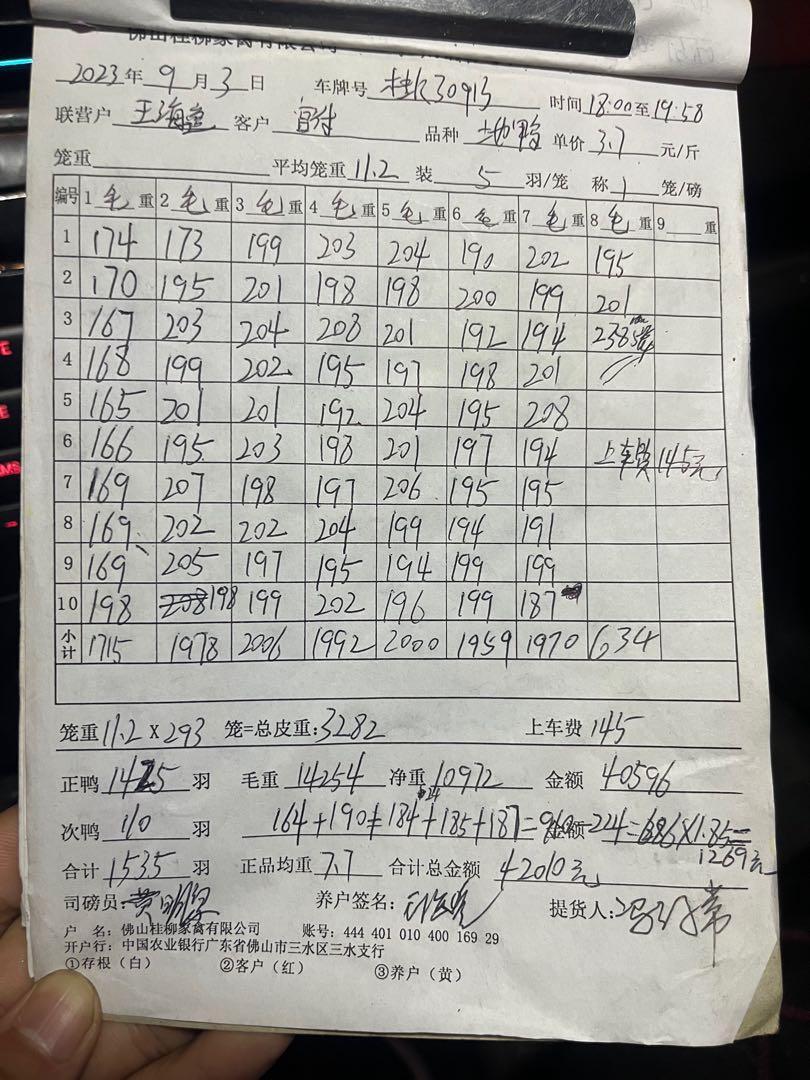 佛山桂柳家禽有限公司
2023年 9月 3日 车牌号 桂K30913 时间 18:00至19:58
联营户 王海 客户 品种 土也鸭 单价 3.7 元/斤
笼重 平均笼重 11.2 装 5 羽/笼 称 1 笼/磅
编号 1毛重 2毛重 3毛重 4毛重 5毛重 6毛重 7毛重 8毛重 9 重
1 174 173 199 203 204 190 202 195
2 170 195 201 198 198 200 199 201
3 167 203 204 208 201 192 194 238
4 168 199 202 195 197 198 201
5 165 201 201 192 204 195 208
6 166 195 203 198 201 197 194 上车费 145元
7 169 207 198 197 206 195 195
8 169 202 202 204 199 194 191
9 169 205 197 195 194 199 199
10 198 198 199 202 196 199 187
小计 1715 1978 2006 1992 2000 1959 1970 634
笼重 11.2 X 293 笼=总皮重:3282 上车费 145
正鸭 1425 羽 毛重 14254 净重 10972 金额 40596
次鸭 110 羽 164+190+184+185+187= 金额 -224=686X1.85=
1269元
合计 1535 羽 正品均重 7.7 合计总金额 42010元
司磅员: 养户签名: 提货人:
户 名: 佛山桂柳家禽有限公司 账号: 444 401 010 400 169 29
开户行: 中国农业银行广东省佛山市三水区三水支行
①存根(白) ②客户(红) ③养户(黄)